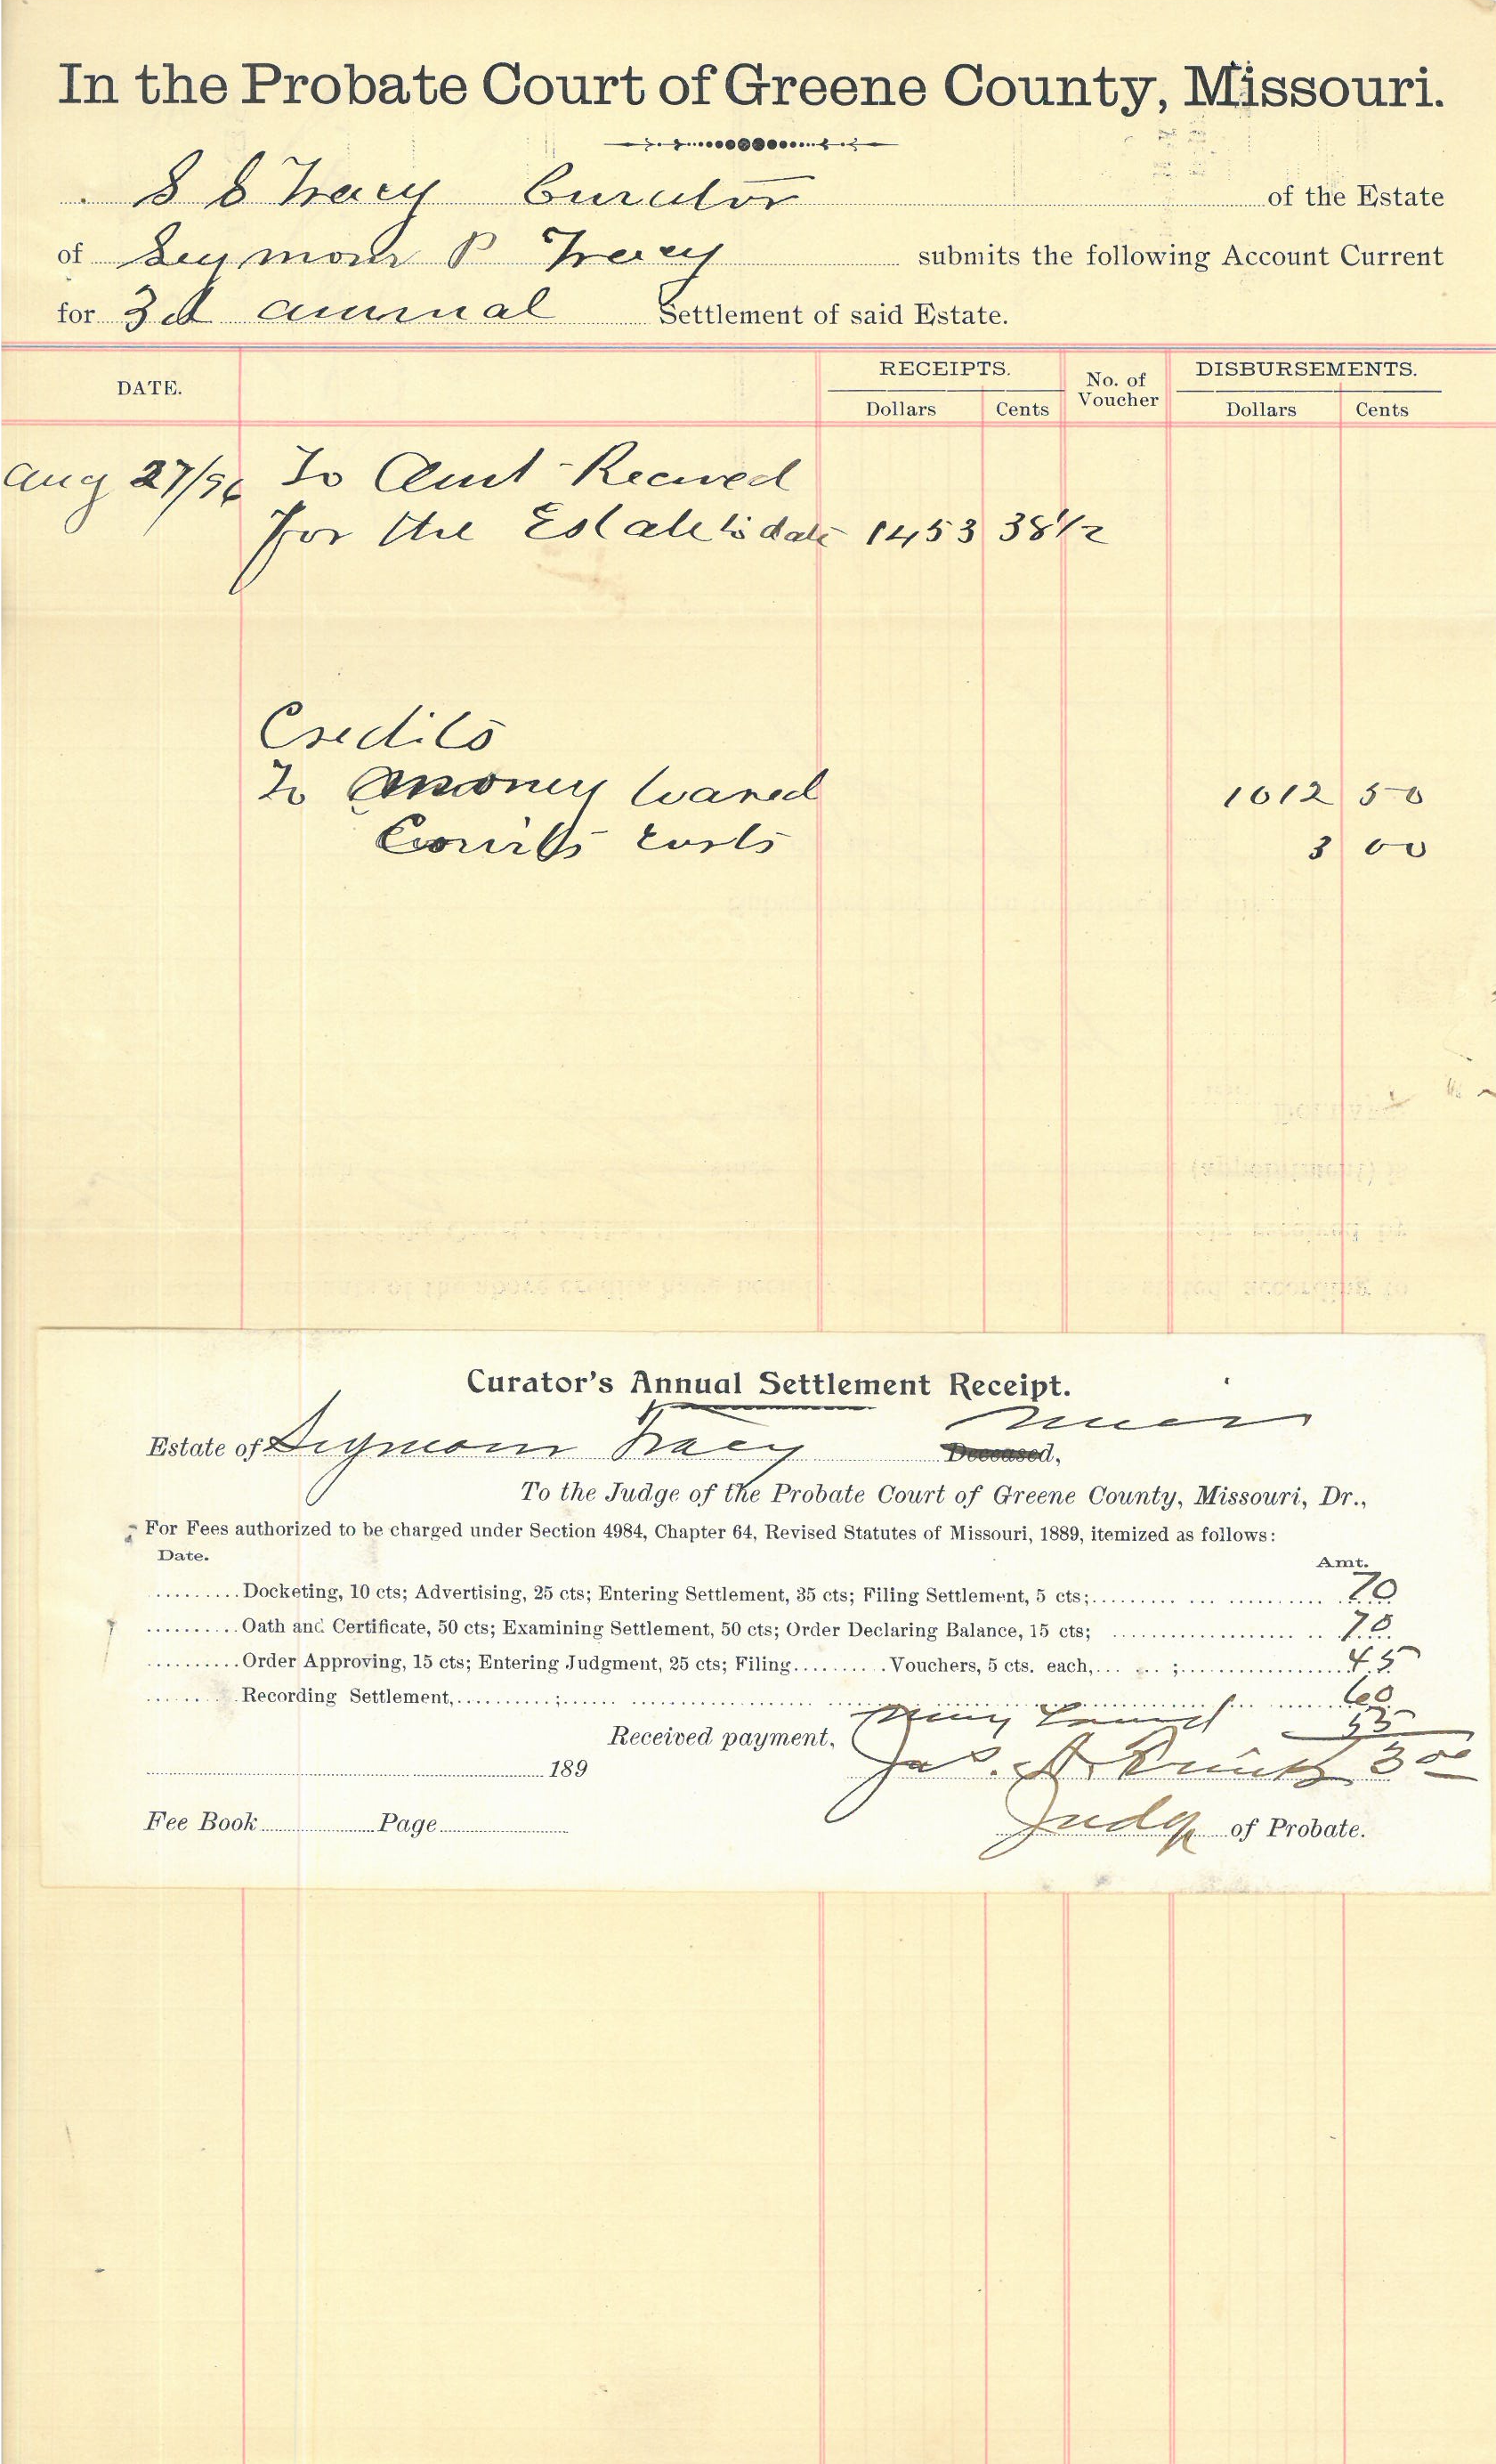 In the Probate Court of Greene County, Missouri.
S S Tracy Curator of the Estate
of Seymour P Tracy submits the following Account Current
for 3d annual Settlement of said Estate.
DATE. RECEIPTS. No. of Voucher DISBURSEMENTS.
Dollars Cents Dollars Cents
Aug 27/96 To Amt Recived
For the Estate to date 1453 38 1/2
Credits
To money loaned 1012 50
Courts costs 3 00
Curator's Annual Settlement Receipt.
minor
Estate of Seymour Tracy Deceased,
To the Judge of the Probate Court of Greene County, Missouri, Dr.,
For Fees authorized to be charged under Section 4984, Chapter 64, Revised Statutes of Missouri, 1889, itemized as follows:
Date. Amt.
Docketing, 10 cts; Advertising, 25 cts; Entering Settlement, 35 cts; Filing Settlement, 5 cts; 70
Oath and Certificate, 50 cts; Examining Settlement, 50 cts; Order Declaring Balance, 15 cts; 70
Order Approving, 15 cts; Entering Judgment, 25 cts; Filing Vouchers, 5 cts. each, ; 45
Recording Settlement, ; 60
55
Received payment, Jas. 3 00
189
Fee Book Page Judge of Probate.